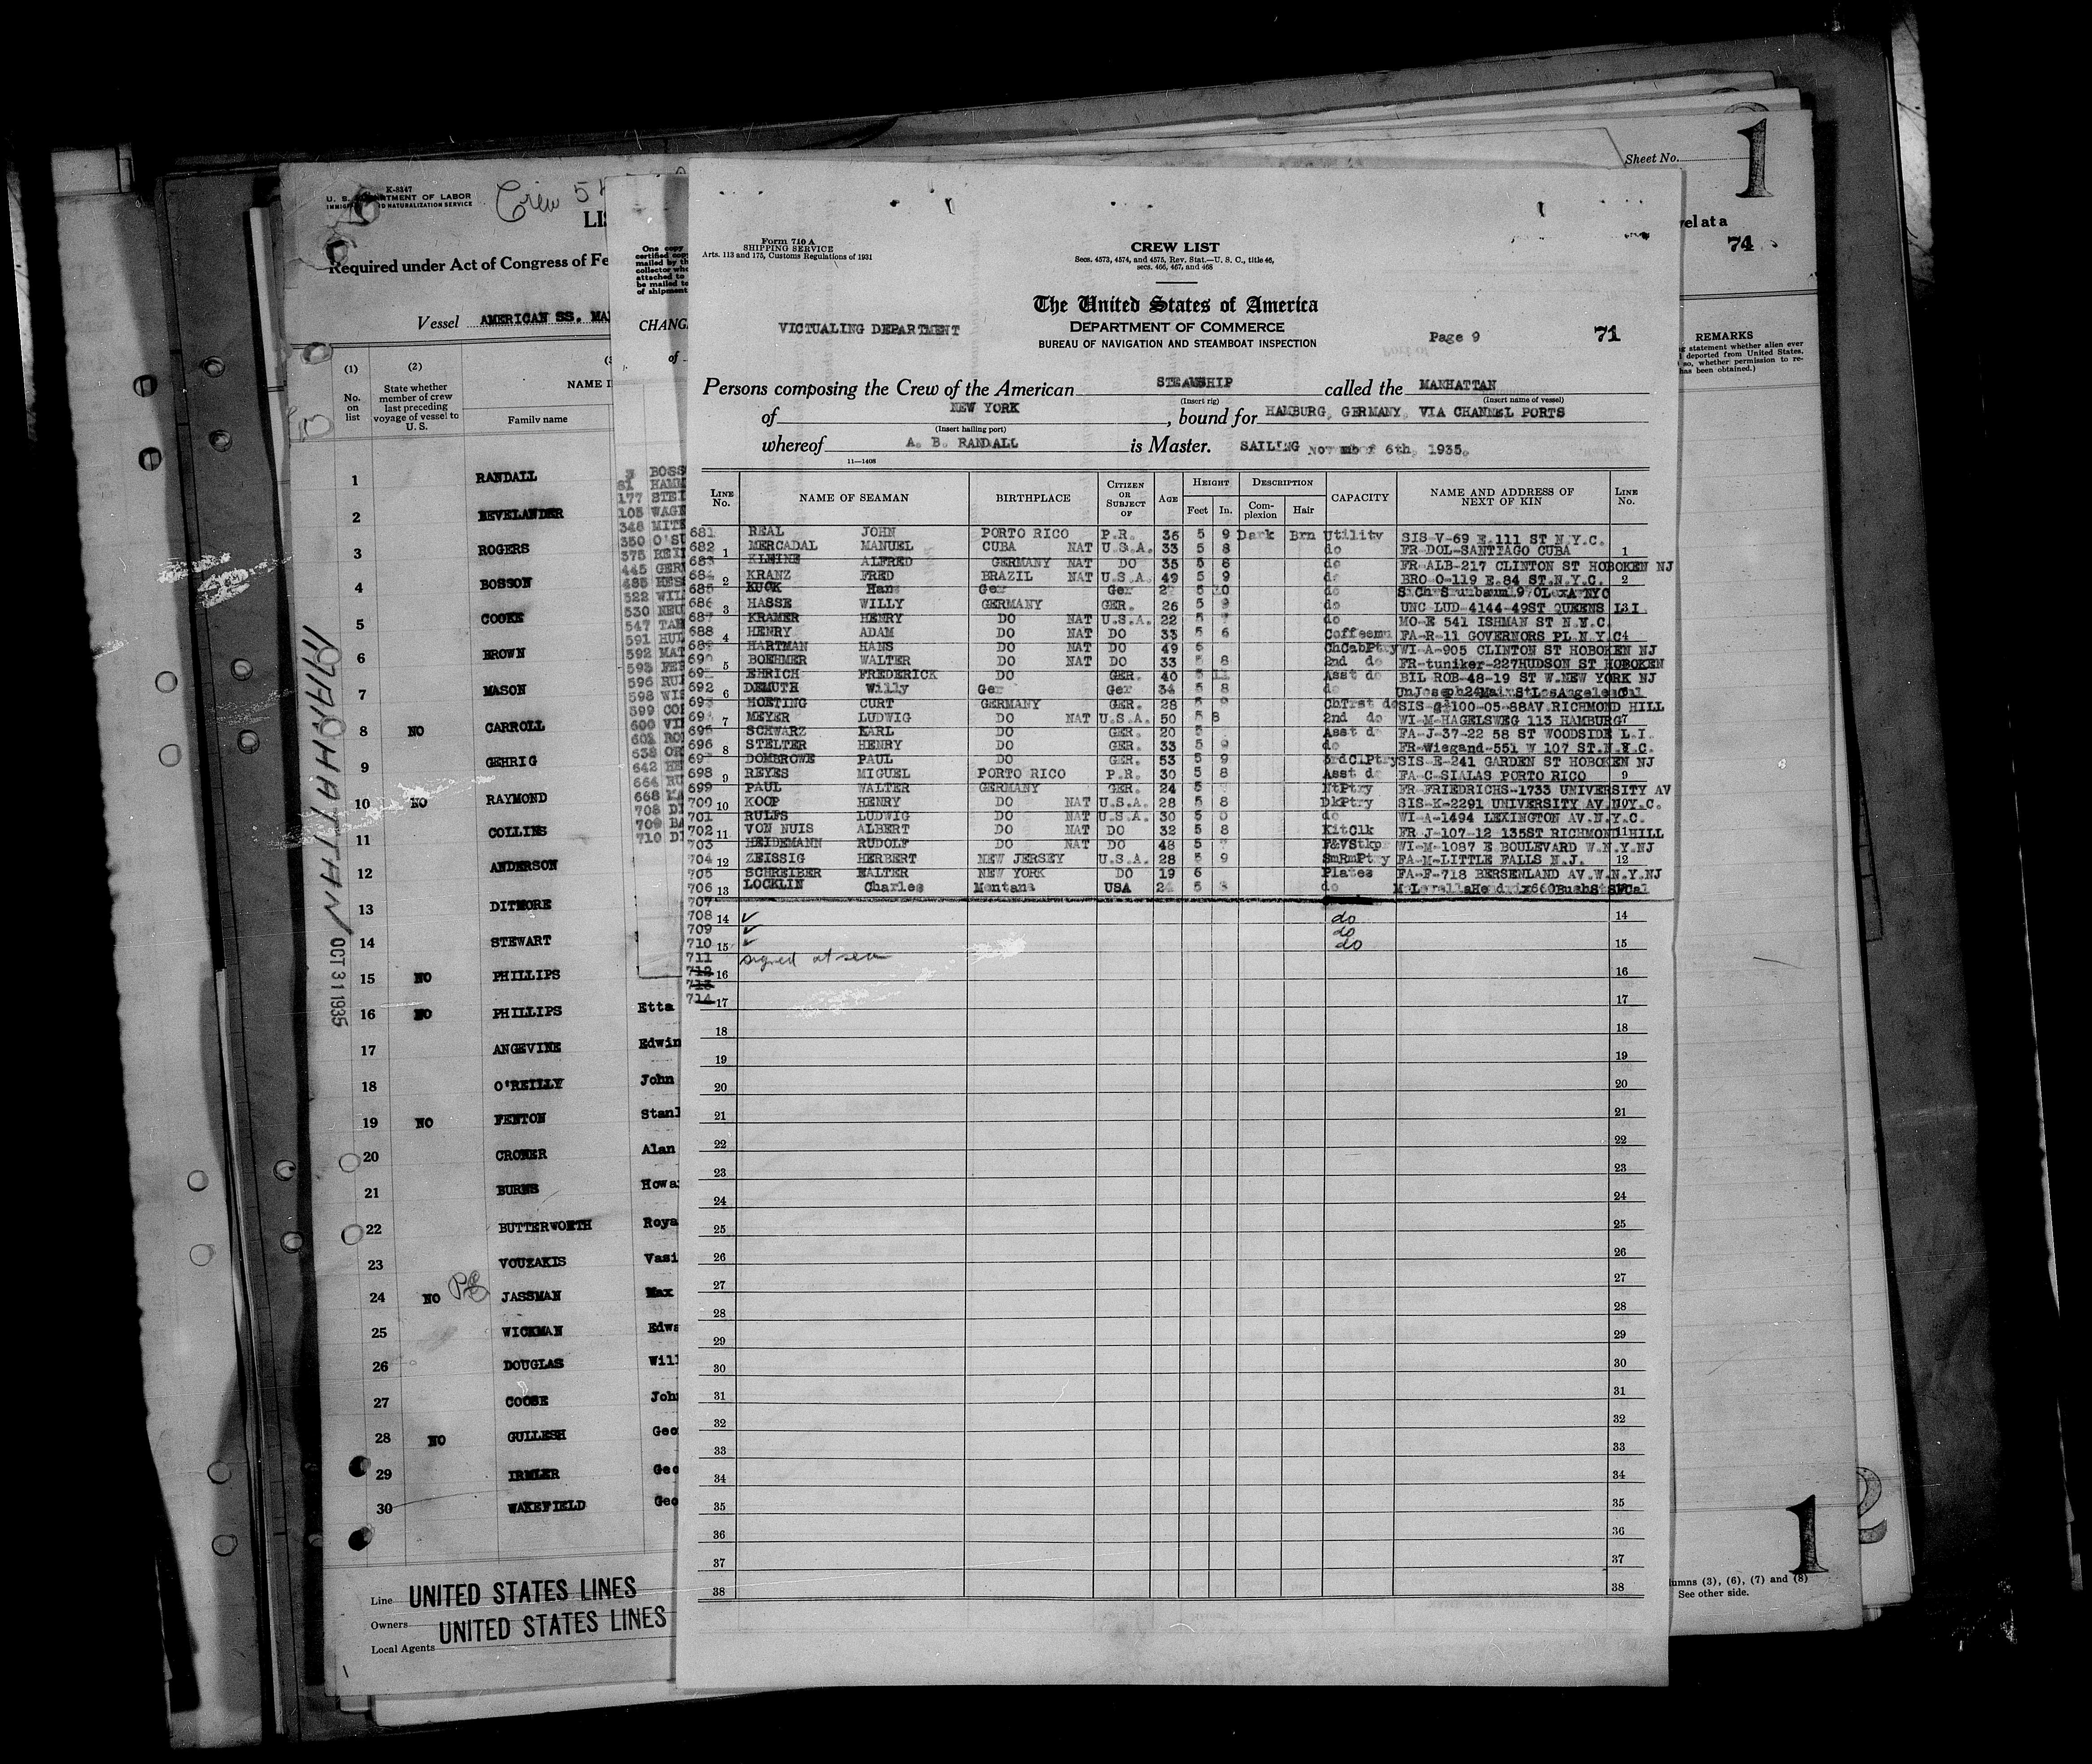 K-8247
U. S. DEPARTMENT OF LABOR
IMMIGRATION AND NATURALIZATION SERVICE
Crew
LIS
Required under Act of Congress of Fe
Vessel AMERICAN SS. MA
(1) (2)
No. on list
State whether member of crew last preceding voyage of vessel to U. S.
NAME I
Family name
1 RANDALL
2 BEVELANDER
3 ROGERS
4 BOSSON
5 COOKE
6 BROWN
7 MASON
8 NO CARROLL
9 GEHRIG
10 NO RAYMOND
11 COLLINS
12 ANDERSON
13 DITMORE
14 STEWART
15 NO PHILLIPS
16 NO PHILLIPS Etta
17 ANGEVINE Edwin
18 O'REILLY John
19 NO FENTON Stanl
20 CROKER Alan
21 BURNS Howa
22 BUTTERWORTH Roya
23 VOUZAKIS Vasi
24 NO JASSMAN Max
25 WICKMAN Edwa
26 DOUGLAS Will
27 COOSE Joh
28 NO GULLESH Geo
29 IRMLER Geo
30 WAKEFIELD Geo
Line UNITED STATES LINES
Owners
UNITED STATES LINES
Local Agents
MANHATTAN
OCT 31 1935
One copy
certified copy
mailed by th
collector who
attached to
be mailed to
of shipment
CHANG
of
BOSS
81 HAMM
177 STEI
105 WAGN
348 MITE
350 O'SU
375 REI
445 GER
485 HES
522 WIL
530 NEU
547 TAH
591 HUL
592 MAT
593 FER
596 RUI
598 WIS
599 COI
600 VII
602 RO
638 OR
642 HE
664 RU
668 KA
708 DI
709 BA
710 DI
Form 710 A
SHIPPING SERVICE
Arts. 113 and 175, Customs Regulations of 1931
CREW LIST
Secs. 4573, 4574, and 4575, Rev. Stat.—U. S. C., title 46,
secs. 466, 467, and 468
The United States of America
DEPARTMENT OF COMMERCE
BUREAU OF NAVIGATION AND STEAMBOAT INSPECTION
VICTUALING DEPARTMENT
Page 9
71
Persons composing the Crew of the American STEAMSHIP called the MANHATTAN
(Insert rig) (Insert name of vessel)
of NEW YORK, bound for HAMBURG, GERMANY, VIA CHANNEL PORTS
(Insert hailing port)
whereof A. B. RANDALL is Master. SAILING November 6th, 1935.
11—1408
LINE No. NAME OF SEAMAN BIRTHPLACE CITIZEN OR SUBJECT OF AGE HEIGHT Feet In. DESCRIPTION Complexion Hair CAPACITY NAME AND ADDRESS OF NEXT OF KIN LINE No.
681 REAL JOHN PORTO RICO P.R. 36 5 9 Dark Brn Utility SIS-V-69 E.111 ST N.Y.C.
682 1 MERCADAL MANUEL CUBA NAT U.S.A. 33 5 8 do FR DOL-SANTIAGO CUBA 1
683 KLEINE ALFRED GERMANY NAT DO 35 5 8 do FR ALB-217 CLINTON ST HOBOKEN NJ
684 2 KRANZ FRED BRAZIL NAT U.S.A. 49 5 9 do BRO O-119 E.84 ST.N.Y.C. 2
685 KUCK Hans Ger Ger 5 10 do
686 3 HASSE WILLY GERMANY GER. 26 5 9 do UNC LUD-4144-49ST QUEENS L I 3
687 KRAMER HENRY DO NAT U.S.A. 22 5 do MO-E 541 ISHMAN ST N.Y.C.
688 4 HENRY ADAM DO NAT DO 33 5 6 Coffeemn FA-R-11 GOVERNORS PL.N.Y.C 4
689 HARTMAN HANS DO NAT DO 49 5 ChCabPtry WI-A-905 CLINTON ST HOBOKEN NJ
690 5 BOEHMER WALTER DO NAT DO 33 5 8 2nd do FR-tuniker-227HUDSON ST HOBOKEN
691 EHRICH FREDERICK DO GER. 40 5 11 Asst do BIL ROB-48-19 ST W.NEW YORK NJ
692 6 DEMUTH Willy Ger Ger 34 5 8 do UnJoseph24MainStLosAngelesCal
693 HOETING CURT GERMANY GER. 28 5 ChTrst do SIS-g-100-05-88AV.RICHMOND HILL
694 7 MEYER LUDWIG DO NAT U.S.A. 50 5 8 2nd do WI-M-HAGELSWEG 113 HAMBURG 7
695 SCHWARZ KARL DO GER. 20 5 Asst do FA-J-37-22 58 ST WOODSIDE L.I.
696 8 STELTER HENRY DO GER. 33 5 9 do FR-Wiegand-551 W 107 ST.N.Y.C.
697 DOMBROWE PAUL DO GER. 53 5 9 3rdClPtry SIS-E-241 GARDEN ST HOBOKEN NJ
698 9 REYES MIGUEL PORTO RICO P.R. 30 5 8 Asst do FA-C-SIALAS PORTO RICO 9
699 PAUL WALTER GERMANY GER. 24 5 NtPtry FR FRIEDRICHS-1733 UNIVERSITY AV
700 10 KOOP HENRY DO NAT U.S.A. 28 5 8 DkPtry SIS-K-2291 UNIVERSITY AV.N.Y.C.
701 RULFS LUDWIG DO NAT U.S.A. 30 5 do WI-A-1494 LEXINGTON AV.N.Y.C.
702 11 VON NUIS ALBERT DO NAT DO 32 5 8 KitClk FR J-107-12 135ST RICHMOND HILL 11
703 HEIDEMANN RUDOLF DO NAT DO 48 5 F&VStkpr WI-M-1087 E BOULEVARD W.N.Y.NJ
704 12 ZEISSIG HERBERT NEW JERSEY U.S.A. 28 5 9 SmRmPtry FA-M-LITTLE FALLS N.J. 12
705 SCHREIBER EALTER NEW YORK DO 19 6 Plates FA-F-718 BERSENLAND AV.W.N.Y.NJ
706 13 LOCKLIN Charles Montana USA 5 do
707
708 14 ✓ do 14
709 ✓ do
710 15 ✓ do 15
711 signed at sea
712 16 16
713
714 17 17
18 18
19 19
20 20
21 21
22 22
23 23
24 24
25 25
26 26
27 27
28 28
29 29
30 30
31 31
32 32
33 33
34 34
35 35
36 36
37 37
38 38
Sheet No. 1
vel at a
74
REMARKS
statement whether alien ever
deported from United States,
so, whether permission to re-
has been obtained.)
1
2
lumns (3), (6), (7) and (8)
See other side.